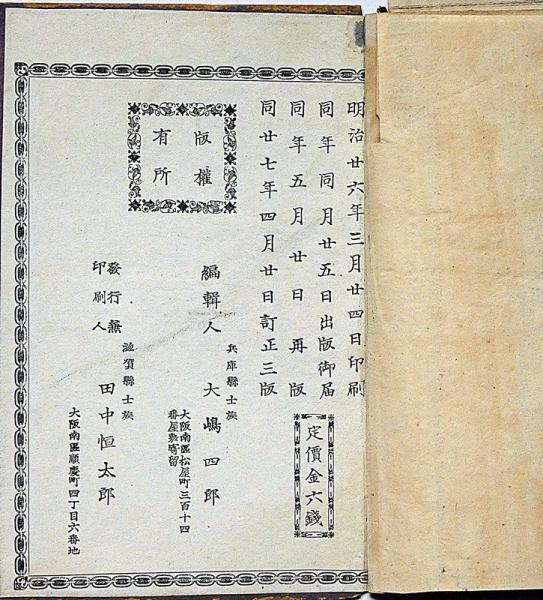 明治廿六年三月廿四日印刷
同年同月廿五日出版御届
同年五月廿日再版
同廿七年四月廿日訂正三版
定價金六錢
版權
所有
編輯人
兵庫縣士族
大嶋四郎
大阪南區松屋町三百十四
番屋敷寄留
發行兼
印刷人
滋賀縣士族
田中恒太郎
大阪南區順慶町四丁目六番地